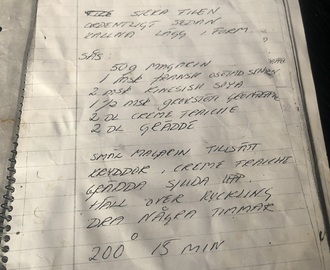 STEK TILLS
ORDENTLIGT SEDAN
KALLNA LÄGG I FORM
SÅS:
50g MAGARIN
1 MSK FRANSK OSÖTAD SENAP
2 MSK KINESISK SOYA
1 1/2 MSK GROVSTÖTT
2 DL CREME FRAICHE
2 DL GRÄDDE
SMÄL MAGARIN TILLSÄTT
KRYDDOR, CREME FRAICHE
GRÄDDA SJUDA UPP
HÄLL ÖVER KYCKLING
DRA NÅGRA TIMMAR
200° 15 MIN